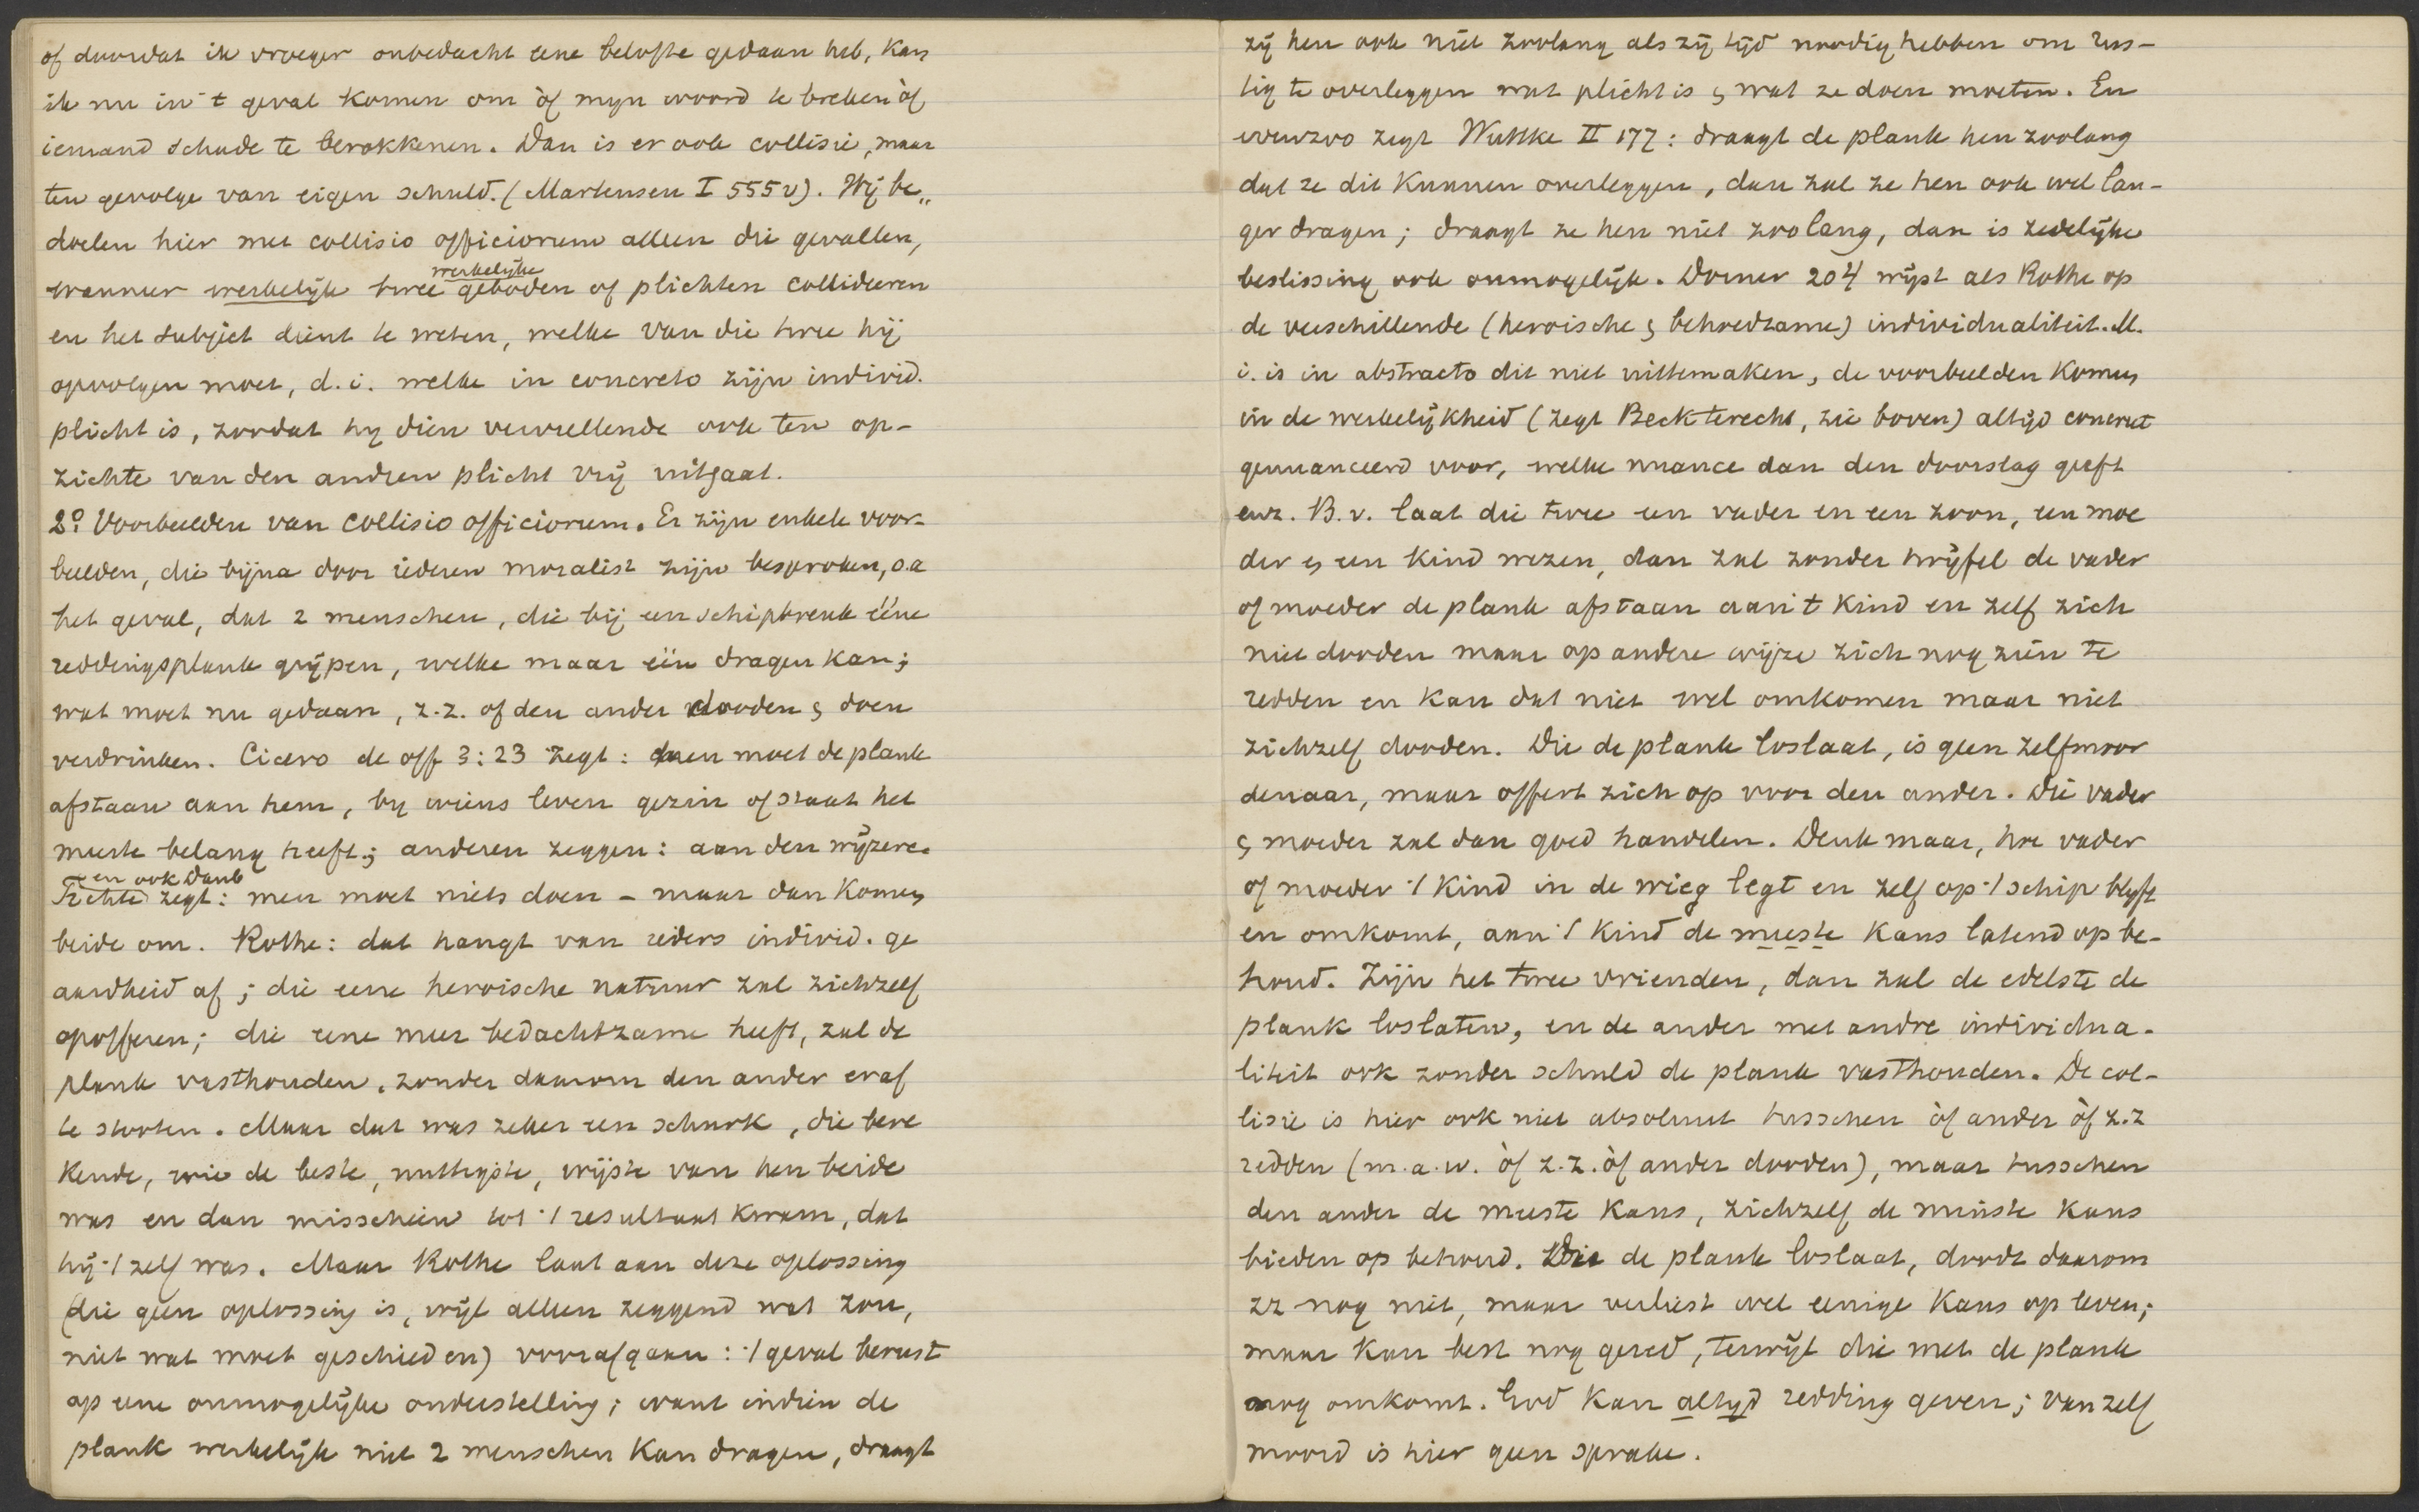 of doordat ik vroeger onbedacht eene belofte gedaan heb, kan
ik nu in 't geval komen om òf myn woord te breken òf
iemand schade te berokkenen. Dan is er ook collisie, maar
ten gevolge van eigen schuld. (Martensen I 555v). Wij be„
doelen hier met collisio officiorum alleen die gevallen,
werkelijke
wanneer werkelijk twee geboden of plichten collideeren
en het subject dient te weten, welke van die twee hij
opvolgen moet, d.i. welke in concreto zijn individ.
plicht is, zoodat hy dien vervullende ook ten op-
zichte van den andren plicht vrij uitgaat.
2º Voorbeelden van collisio officiorum. Er zijn enkele voor-
beelden, die bijna door iederen moralist zijn besproken, o.a
het geval, dat 2 menschen, die bij een schipbreuk ééne
reddingsplank grijpen, welke maar één dragen kan;
wat moet nu gedaan, z.z. of den ander dooden & doen
verdrinken. Cicero de off 3:23 zegt: men moet de plank
afstaan aan hem, by wiens leven gezin of staat het
meeste belang heeft; anderen zeggen: aan den wijzere.
en ook Daub
Fichte zegt: men moet niets doen – maar dan komen
beide om. Rothe: dat hangt van ieders individ. ge
aardheid af; die eene heroische natuur zal zichzelf
opofferen; die eene meer bedachtzame heeft, zal de
plank vasthouden, zonder daarom den ander eraf
te storten. Maar dat was zeker een schurk, die bere
kende, wie de beste, nuttigste, wijste van hen beide
was en dan misschien tot 't resultaat kwam, dat
hij 't zelf was. Maar Rothe laat aan deze oplossing
(die geen oplossing is, wijl alleen zeggend wat zou,
niet wat moet geschieden) voorafgaan: 't geval berust
op eene onmogelijke onderstelling; want indien de
plank werkelijk niet 2 menschen kan dragen, draagt
zij hen ook niet zoolang als zij tijd noodig hebben om rus-
tig te overleggen wat plicht is & wat ze doen moeten. En
evenzoo zegt Wuttke II 177: draagt de plank hen zoolang
dat ze dit kunnen overleggen, dan zal ze hen ook wel lan-
ger dragen; draagt ze hen niet zoolang, dan is zedelijke
beslissing ook onmogelijk. Dorner 204 wijst als Rothe op
de verschillende (heroische & behoedzame) individualiteit. M.
i. is in abstracto dit niet uittemaken, de voorbeelden komen
in de werkelijkheid (zegt Beck terecht, zie boven) altijd concreet
genuanceerd voor, welke nuance dan den doorslag geeft
enz. B.v. laat die twee een vader en een zoon, een moe
der & een kind wezen, dan zal zonder twijfel de vader
of moeder de plank afstaan aan 't kind en zelf zich
niet dooden maar op andere wijze zich nog zien te
redden en kan dat niet wel omkomen maar niet
zichzelf dooden. Die de plank loslaat, is geen zelfmoor
denaar, maar offert zich op voor den ander. Die vader
& moeder zal dan goed handelen. Denk maar, hoe vader
of moeder 't kind in de wieg legt en zelf op 't schip blyft
en omkomt, aan 't kind de meeste kans latend op be-
houd. Zijn het twee vrienden, dan zal de edelste de
plank loslaten, en de ander met andre individua-
liteit ook zonder schuld de plank vasthouden. De col-
lisie is hier ook niet absoluut tusschen òf ander òf z.z
redden (m.a.w. òf z.z. òf ander dooden), maar tusschen
den ander de meeste kans, zichzelf de minste kans
bieden op behoud. Die de plank loslaat, doodt daarom
zz nog niet, maar verliest wel eenige kans op leven;
maar kan best nog gered, terwijl die met de plank
nog omkomt. God kan altyd redding geven; van zelf
moord is hier geen sprake.